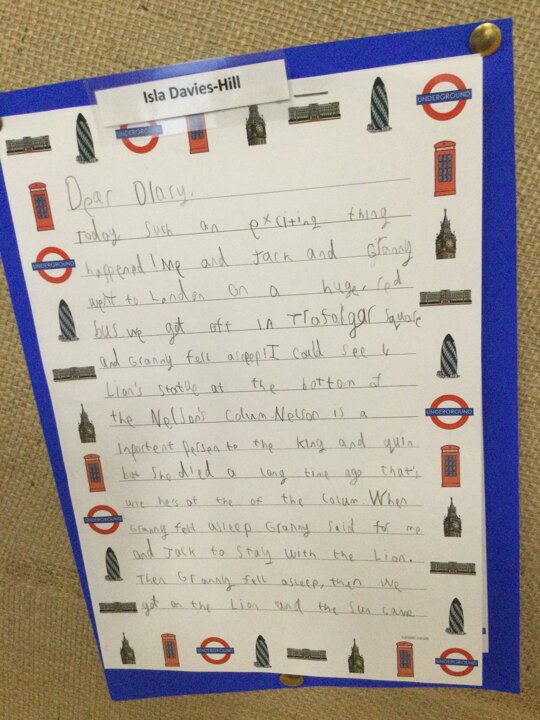 Isla Davies-Hill
UNDERGROUND
UNDERGROUND
Dear Diary,
Today such an exciting thing
happened! Me and Jack and Granny
UNDERGROUND
went to London on a huge, red
bus. we got off in Trafalgar Square
and Granny fell asleep! I could see 4
Lion's statue at the bottom of
the Nelson's Colum. Nelson is a
UNDERGROUND
inportent person to the King and quin
but she died a long time ago that's
wie he's at the of the Colum. When
UNDERGROUND
Granny fell asleep Granny said for me
and Jack to stay with the Lion.
Then Granny fell asleep, then we
got on the Lion and the sun came
UNDERGROUND
UNDERGROUND